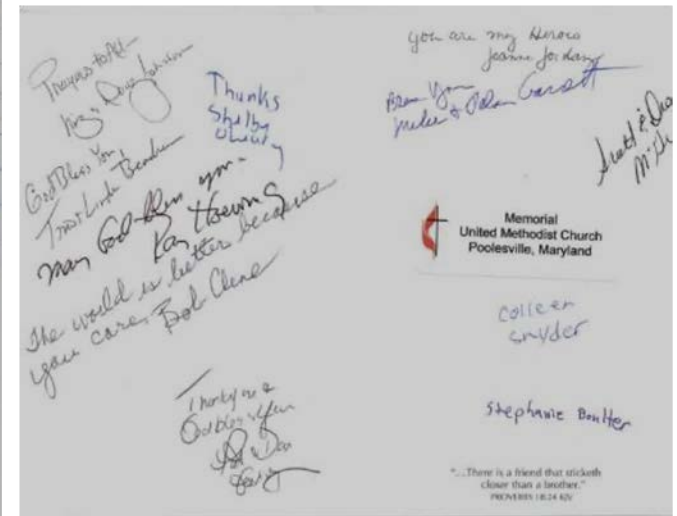 Prayers to All-
Thanks
Shelby
God Bless You,
May God bless you-
Ray Hoewing
The world is better because
you care, Bob Cline
Thank you &
God bless you
You are my Heroes
Jeanne Jordan
Bless You
Mike &
Scott &
Memorial
United Methodist Church
Poolesville, Maryland
Colleen
Snyder
Stephanie Boulter
"...There is a friend that sticketh
closer than a brother."
PROVERBS 18:24 KJV